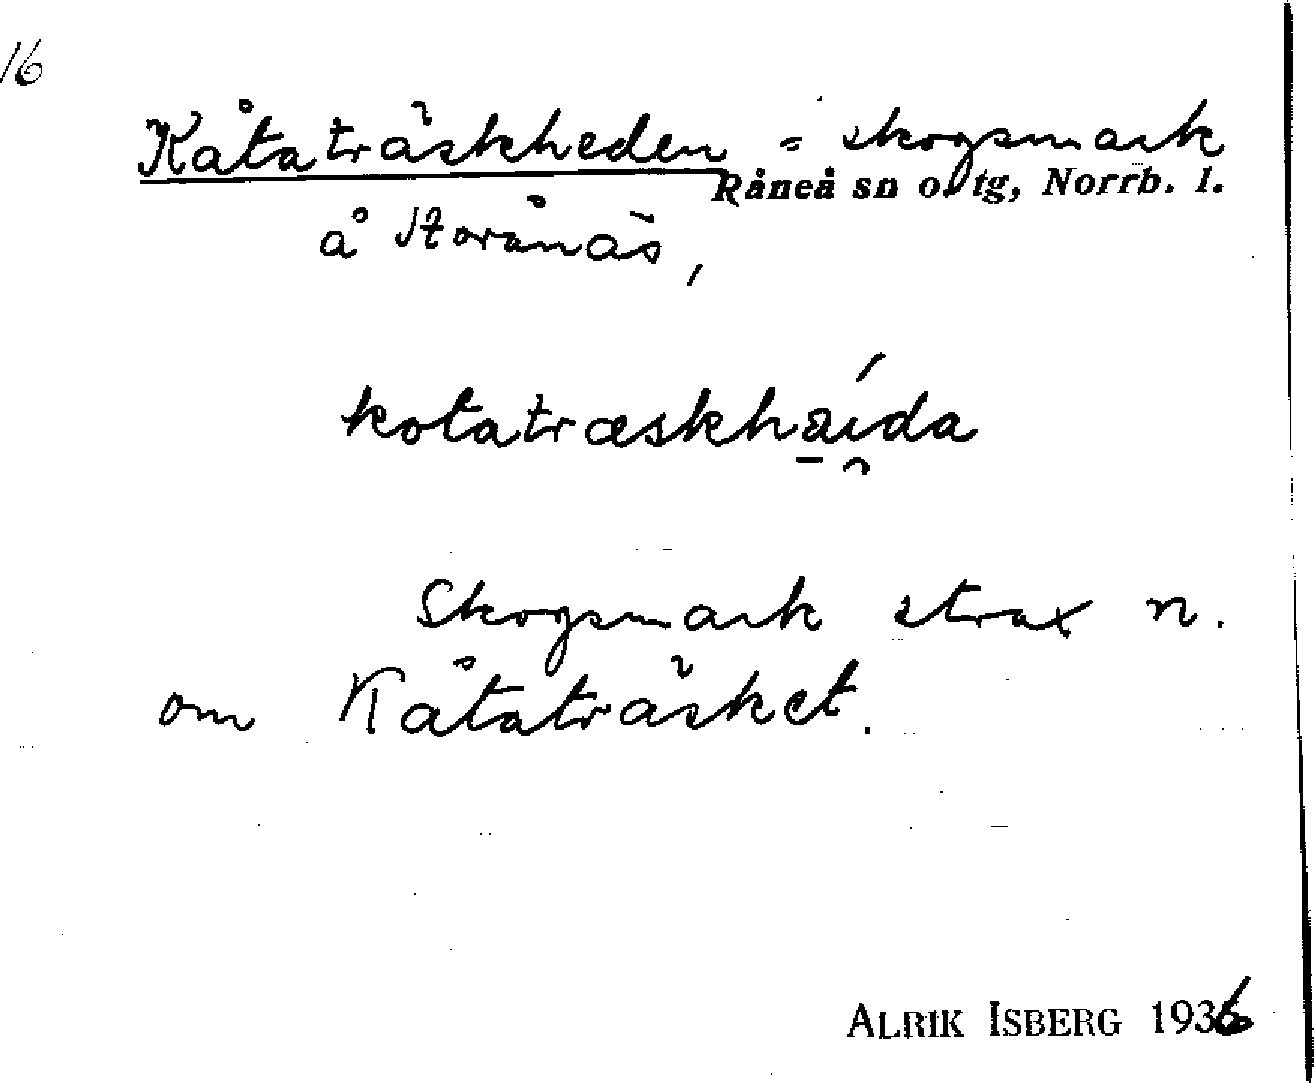 16
Kåtaträskheden = skogsmark
Råneå sn o. tg, Norrb. l.
å Storånäs,
kotatræskha̱í̯da
Skogsmark strax n.
om Kåtaträsket.
ALRIK ISBERG 1936